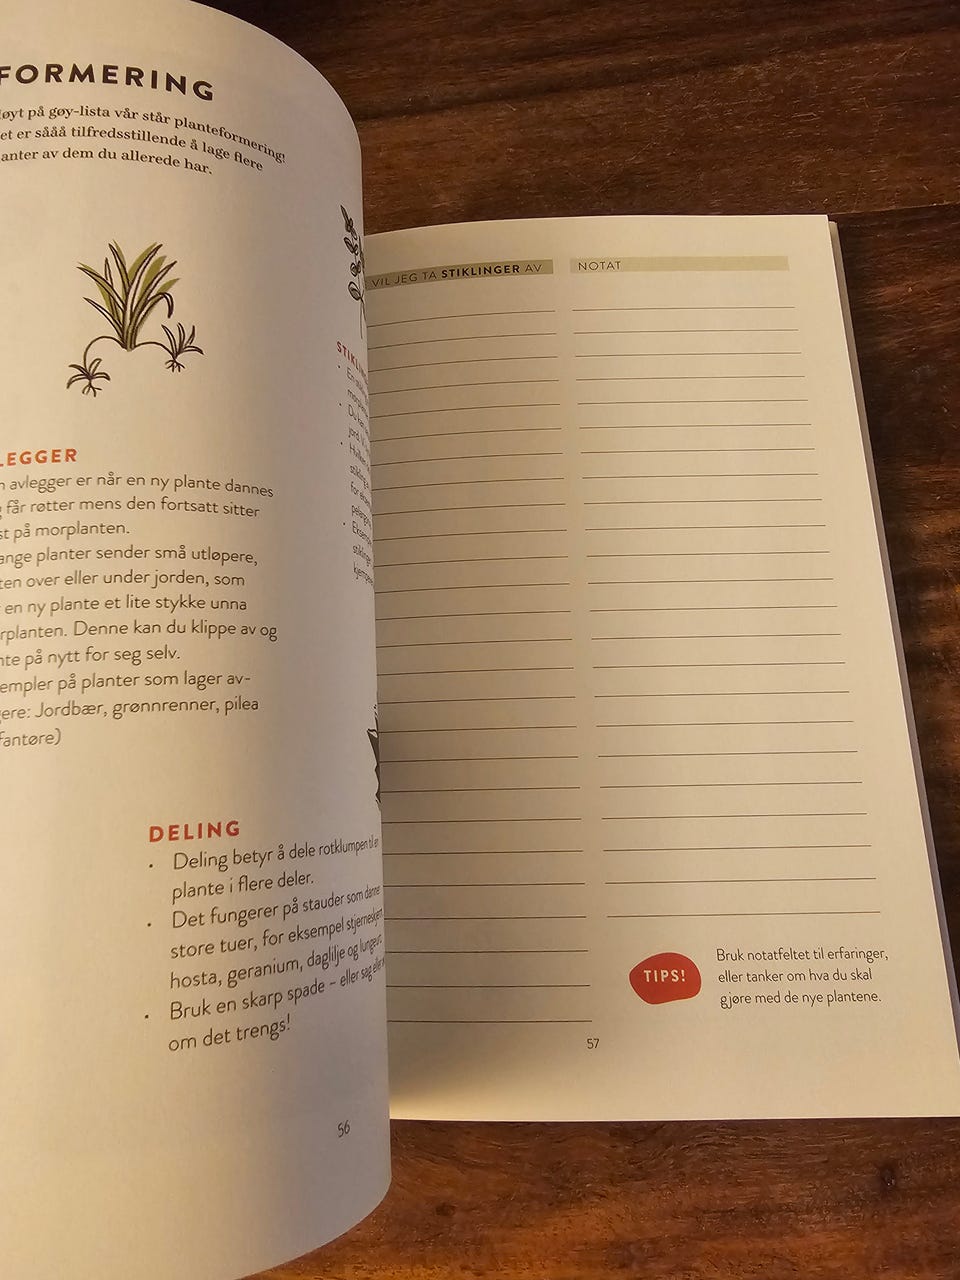 FORMERING
øyt på gøy-lista vår står planteformering!
et er sååå tilfredsstillende å lage flere
anter av dem du allerede har.
LEGGER
avlegger er når en ny plante dannes
får røtter mens den fortsatt sitter
st på morplanten.
ange planter sender små utløpere,
ten over eller under jorden, som
en ny plante et lite stykke unna
rplanten. Denne kan du klippe av og
nte på nytt for seg selv.
empler på planter som lager av-
ere: Jordbær, grønnrenner, pilea
fantøre)
DELING
• Deling betyr å dele rotklumpen til en
plante i flere deler.
• Det fungerer på stauder som danner
store tuer, for eksempel stjerneskjerm,
hosta, geranium, daglilje og lungeurt.
• Bruk en skarp spade – eller sag eller
om det trengs!
56
STIKLING
• En stik
morplan
• Du kan
jord.
• Hvilken
stikling
for eks
pelargo
• Eksemp
stiklinge
kjempe
VIL JEG TA STIKLINGER AV
NOTAT
TIPS!
Bruk notatfeltet til erfaringer,
eller tanker om hva du skal
gjøre med de nye plantene.
57